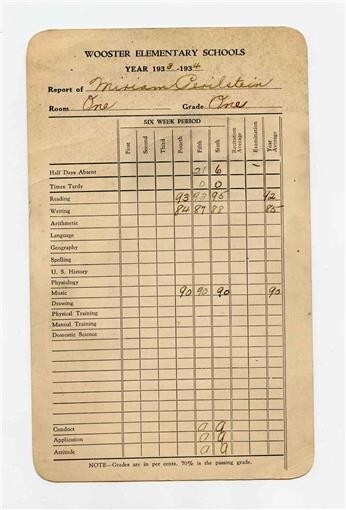 WOOSTER ELEMENTARY SCHOOLS
YEAR 1933-1934
Report of Miriam Perilstein
Room One Grade One
SIX WEEK PERIOD
First Second Third Fourth Fifth Sixth Recitation Average Examination Year Average
Half Days Absent 21 6
Times Tardy 0 0
Reading 93 93 95 92
Writing 84 87 88 85
Arithmetic
Language
Geography
Spelling
U. S. History
Physiology
Music 90 90 90 90
Drawing
Physical Training
Manual Training
Domestic Science
Conduct a a
Application a a
Attitude a a
NOTE—Grades are in per cents. 70% is the passing grade.